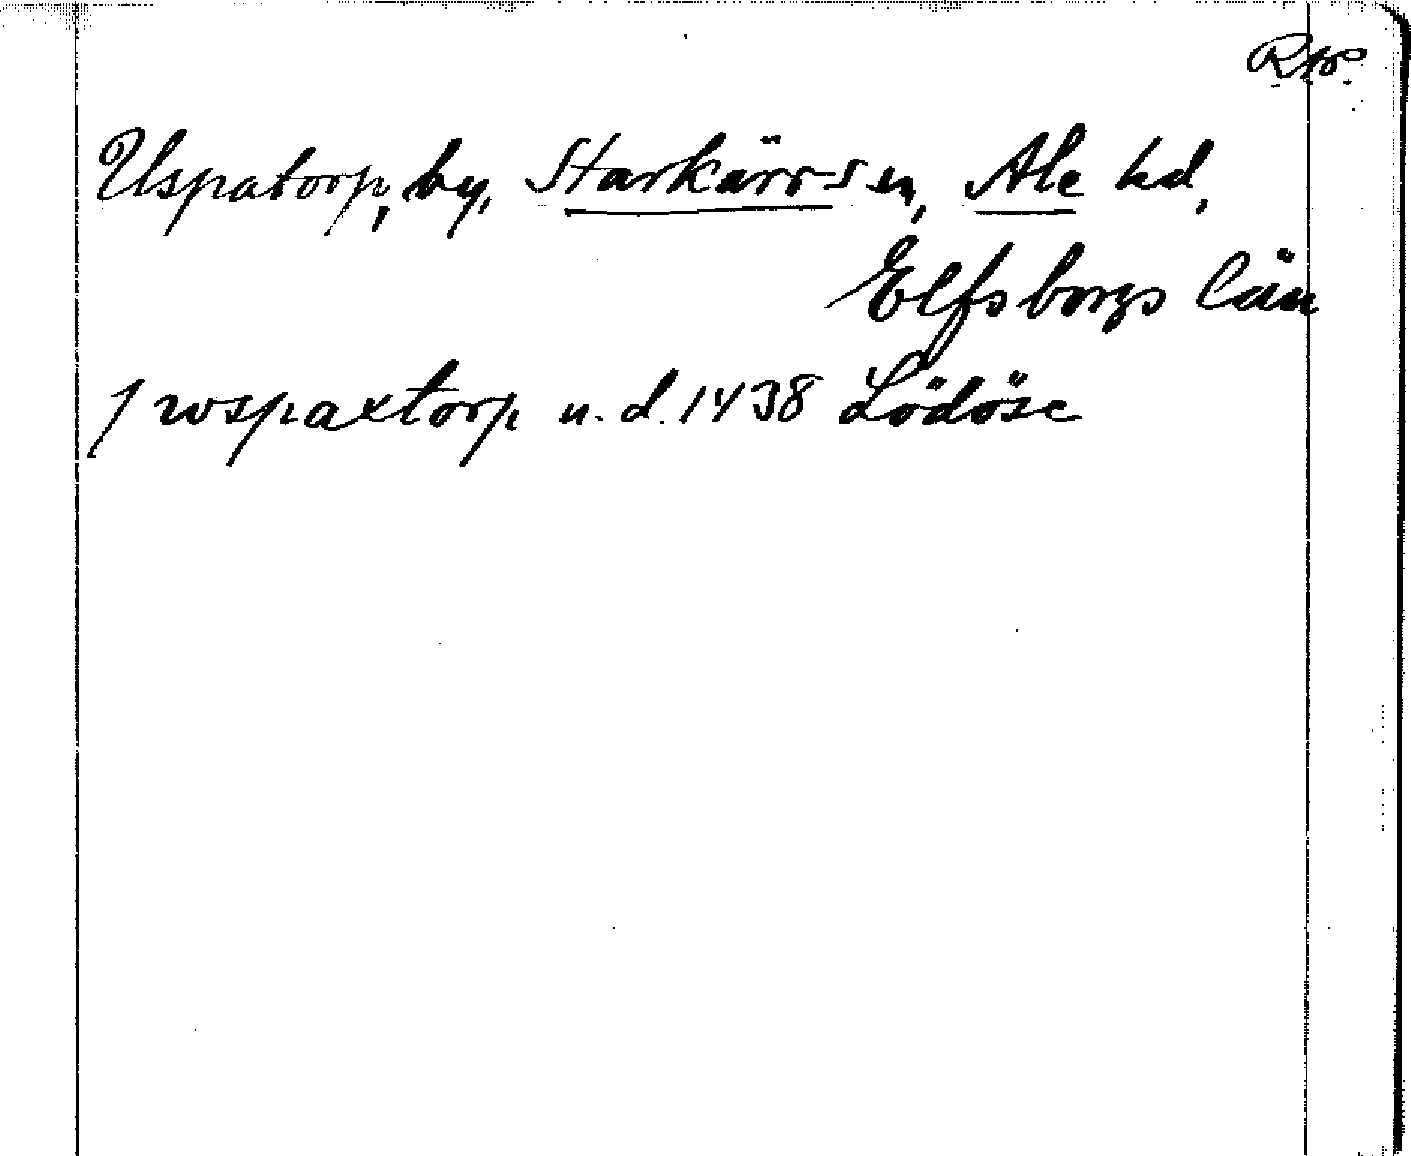 Uspatorp, by, Starkärrs sn, Ale hd,
Elfsborgs län
J wspaxtorp u. d. 1438 Lödöse